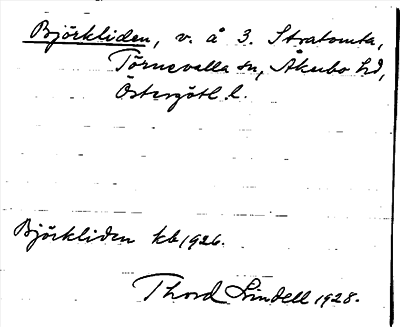 Björkliden, v. å 3. Stratomta,
Törnevalla sn, Åkerbo hd,
Östergötl. l.
Björkliden kb 1926.
Thord Lindell 1928.